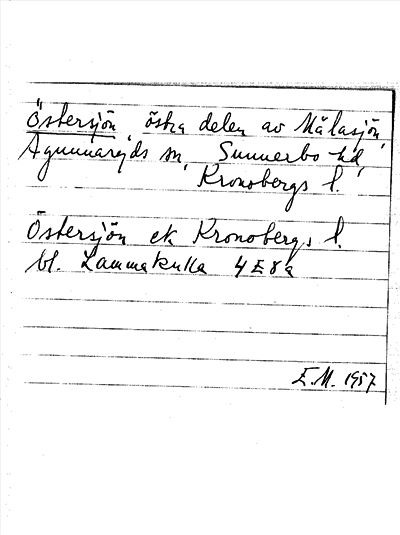 Östersjön, östra delen av Målasjön,
Agunnaryds sn, Sunnerbo hd,
Kronobergs l.
Östersjön ek Kronobergs l.
bl. Lammakulla 4E8a
E.M. 1957